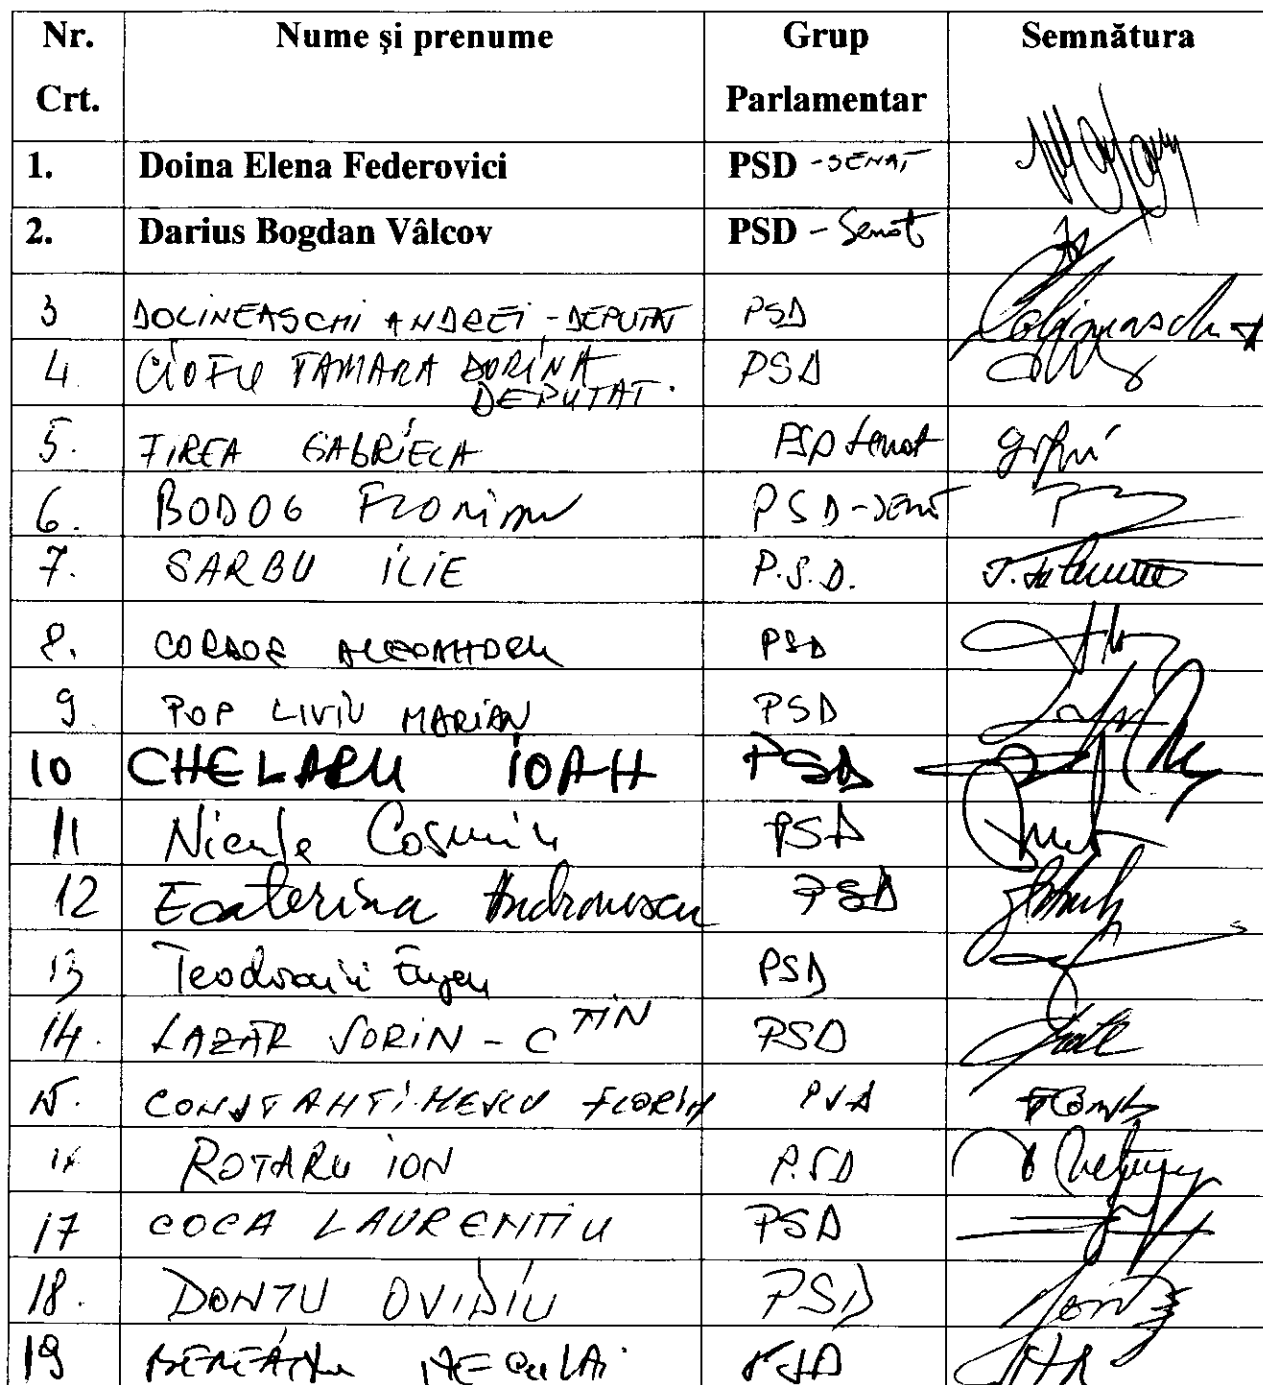 Nr. Crt. Nume şi prenume Grup Parlamentar Semnătura
1. Doina Elena Federovici PSD - SENAT
2. Darius Bogdan Vâlcov PSD - Senat
3 DOLINEASCHI ANDREI - DEPUTAT PSD
4. CIOFU TAMARA DORINA DEPUTAT. PSD
5. FIREA GABRIELA PSD Senat
6. BODOG Florian PSD - Senat
7. SARBU ILIE P.S.D.
8. CORDOȘ ALEXANDRU PSD
9. POP LIVIU MARIAN PSD
10 CHELARU IOAN PSD
11 Nicula Cosmin PSD
12 Ecaterina Andronescu PSD
13 Teodorovici Eugen PSD
14. LAZAR SORIN - CTIN PSD
15. CONSTANTINESCU FLORIN PSD
16 ROTARU ION P.SD
17 COCA LAURENTIU PSD
18. DONTU OVIDIU PSD
19 NECULAI PSD